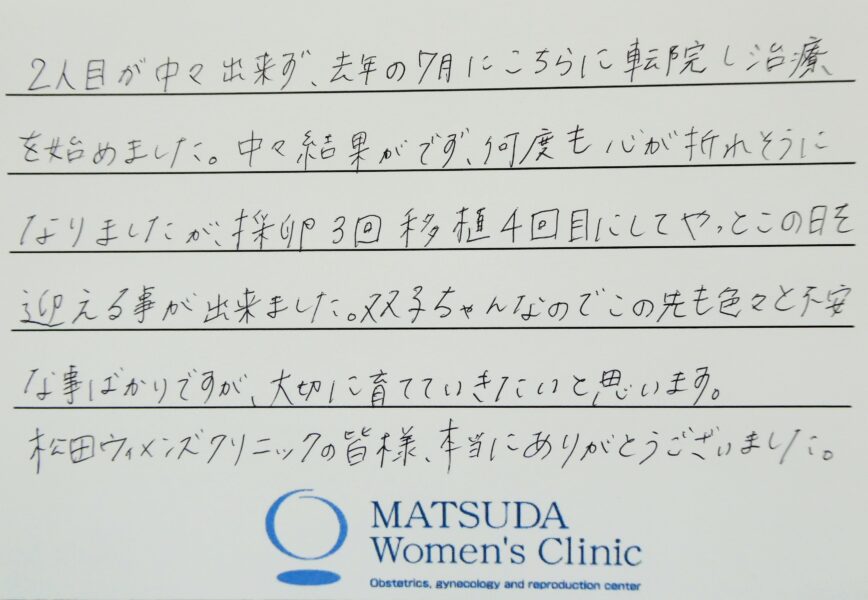 2人目が中々出来ず、去年の7月にこちらに転院し治療
を始めました。中々結果がでず、何度も心が折れそうに
なりましたが、採卵3回移植4回目にしてやっとこの日を
迎える事が出来ました。双子ちゃんなのでこの先も色々と不安
な事ばかりですが、大切に育てていきたいと思います。
松田ウィメンズクリニックの皆様、本当にありがとうございました。
MATSUDA
Women's Clinic
Obstetrics, gynecology and reproduction center